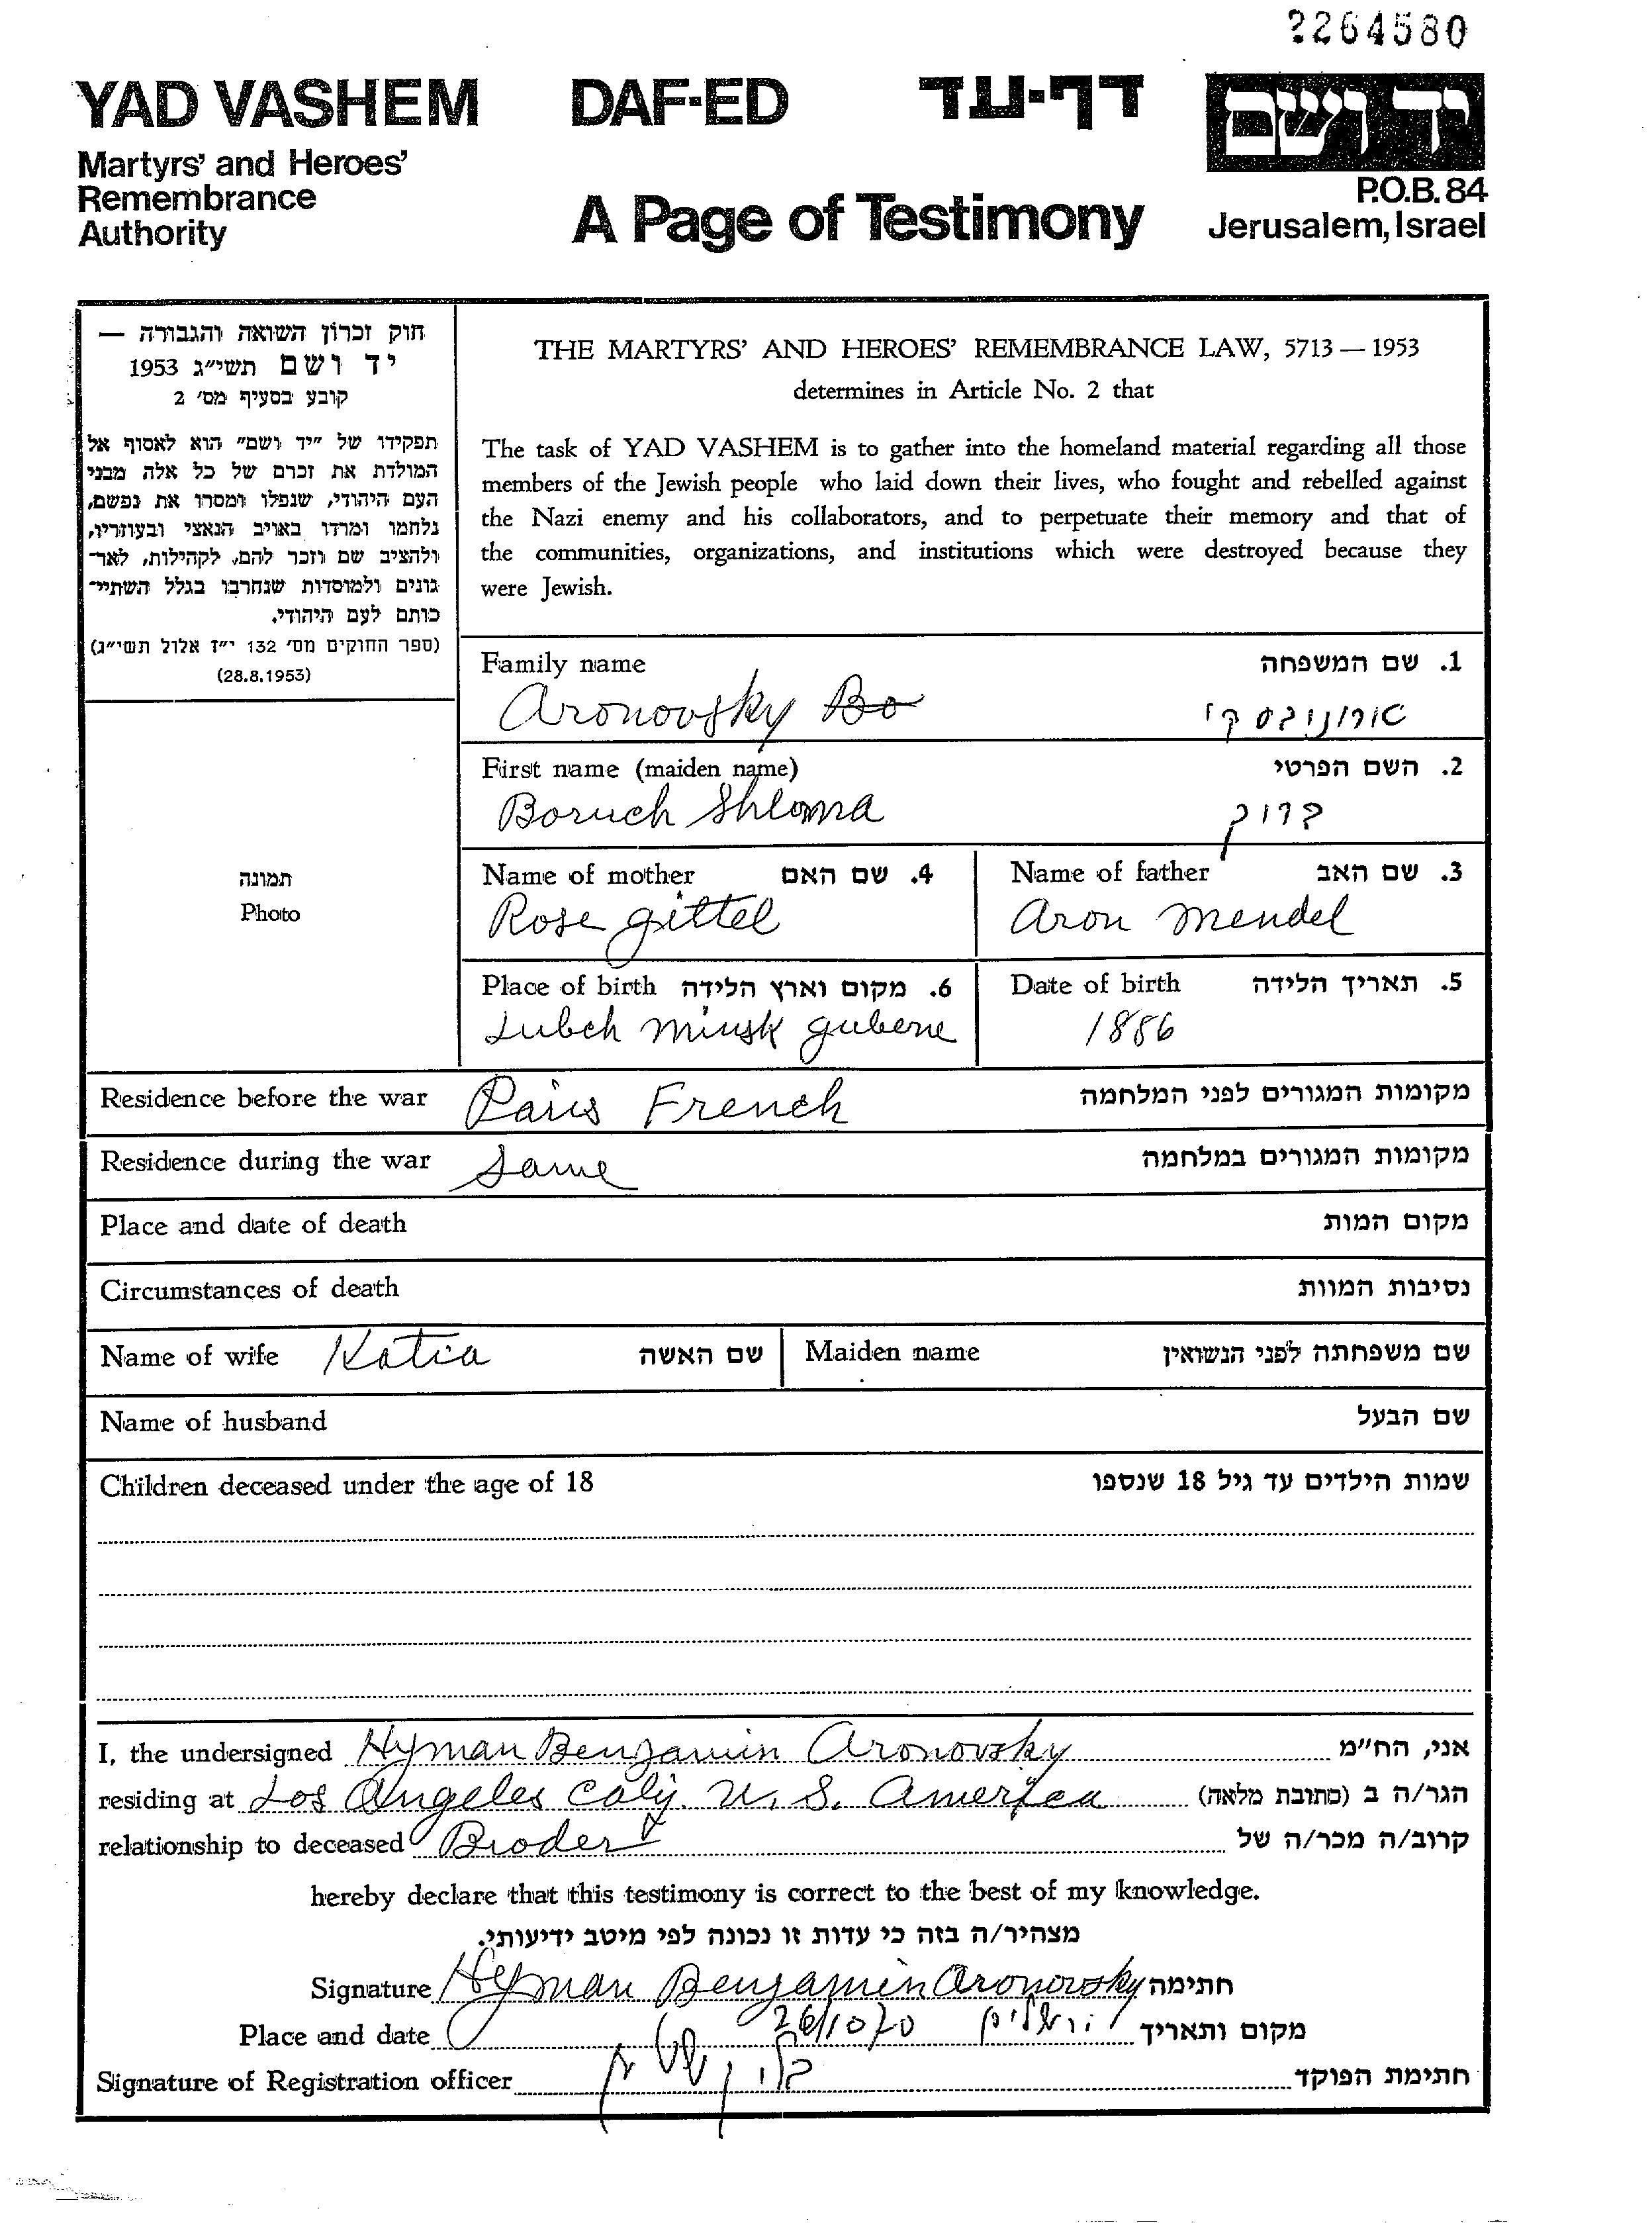 2264580
YAD VASHEM DAF-ED דף-עד יד ושם
Martyrs' and Heroes'
Remembrance
Authority
A Page of Testimony
P.O.B. 84
Jerusalem, Israel
חוק זכרון השואה והגבורה —
יד ושם תשי"ג 1953
קובע בסעיף מס' 2
תפקידו של "יד ושם" הוא לאסוף אל
המולדת את זכרם של כל אלה מבני
העם היהודי, שנפלו ומסרו את נפשם,
נלחמו ומרדו באויב הנאצי ובעוזריו,
ולהציב שם וזכר להם, לקהילות, לאר־
גונים ולמוסדות שנחרבו בגלל השתיי־
כותם לעם היהודי.
(ספר החוקים מס' 132 י"ז אלול תשי"ג)
(28.8.1953)
תמונה
Photo
THE MARTYRS' AND HEROES' REMEMBRANCE LAW, 5713 — 1953
determines in Article No. 2 that
The task of YAD VASHEM is to gather into the homeland material regarding all those
members of the Jewish people who laid down their lives, who fought and rebelled against
the Nazi enemy and his collaborators, and to perpetuate their memory and that of
the communities, organizations, and institutions which were destroyed because they
were Jewish.
Family name 1. שם המשפחה
Aronovsky Bo ארונובסקי
First name (maiden name) 2. השם הפרטי
Boruch Shloma ברוך
Name of mother 4. שם האם Name of father 3. שם האב
Rose gittel Aron Mendel
Place of birth 6. מקום וארץ הלידה Date of birth 5. תאריך הלידה
Lubch minsk gubene 1886
Residence before the war Paris French מקומות המגורים לפני המלחמה
Residence during the war Same מקומות המגורים במלחמה
Place and date of death מקום המות
Circumstances of death נסיבות המוות
Name of wife Katia שם האשה Maiden name שם משפחתה לפני הנשואין
Name of husband שם הבעל
Children deceased under the age of 18 שמות הילדים עד גיל 18 שנספו
I, the undersigned Hyman Benjamin Aronovsky אני, הח"מ
residing at Los Angeles Calif. U. S. America הגר/ה ב (כתובת מלאה)
relationship to deceased Broder קרוב/ה מכר/ה של
hereby declare that this testimony is correct to the best of my knowledge.
מצהיר/ה בזה כי עדות זו נכונה לפי מיטב ידיעותי.
Signature Hyman Benjamin Aronovsky חתימה
Place and date 26/10/70 ירושלים מקום ותאריך
Signature of Registration officer חתימת הפוקד